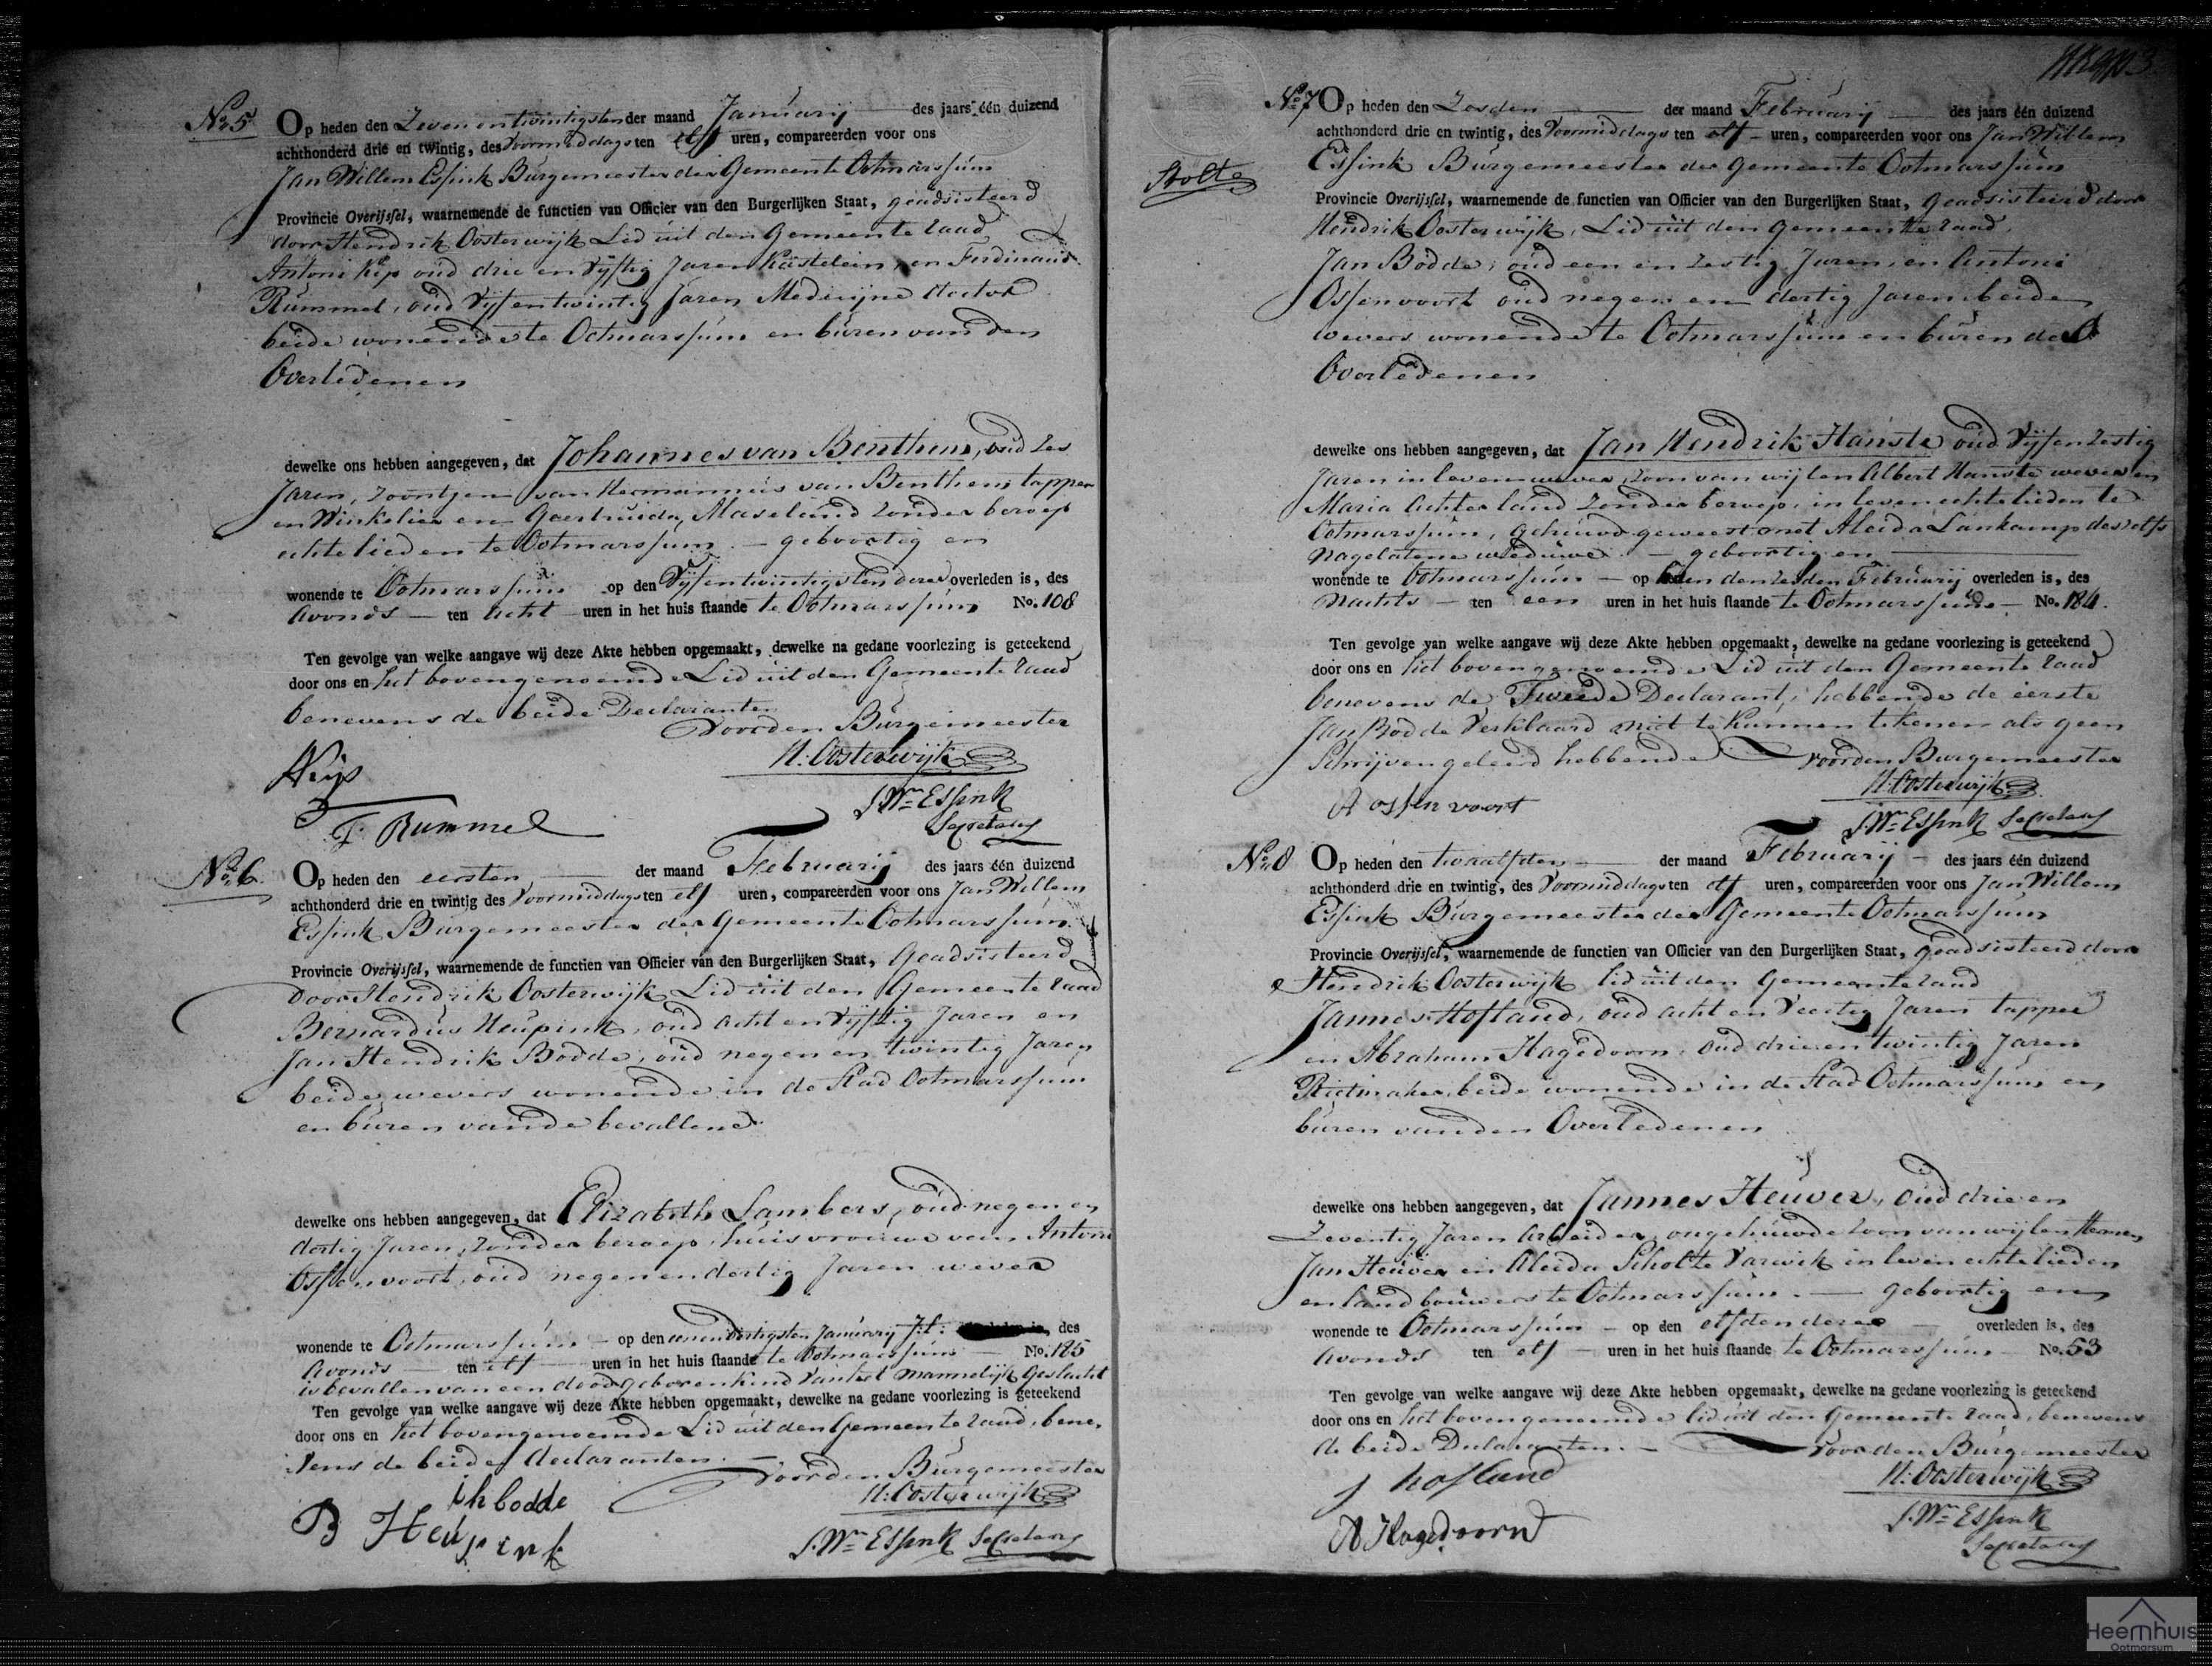 No. 5
Op heden den Zeven en twintigsten der maand Januarij des jaars één duizend
achthonderd drie en twintig, des Voormiddags ten elf uren, compareerden voor ons
Jan Willem Essink Burgemeester der Gemeente Ootmarssum
Provincie Overijssel, waarnemende de functien van Officier van den Burgerlijken Staat, geadsisteerd
door Hendrik Oosterwijk Lid uit den Gemeente raad
Antoni Kip oud drie en Vijftig Jaren Kastelein, en Ferdinand
Rummel, oud Vijf en twintig Jaren Medicijne doctor
beide wonende te Ootmarssum en buren van den
Overledenen
dewelke ons hebben aangegeven, dat Johannes van Benthem, oud zes
Jaren, zoontjen van Hermannus van Benthem tapper
en Winkelier en Geertruida Maseland zonder beroep
echtelieden te Ootmarssum - geboortig en
wonende te Ootmarssum op den Vijf en twintigsten dezer overleden is, des
Avonds ten acht uren in het huis staande te Ootmarssum No. 108
Ten gevolge van welke aangave wij deze Akte hebben opgemaakt, dewelke na gedane voorlezing is geteekend
door ons en het bovengenoemde Lid uit den Gemeente raad
benevens de beide Declaranten
Voor den Burgemeester
H: Oosterwijk
AKip
J. Wm Essink
Secretary
F. Rummel
No. 6.
Op heden den eersten der maand Februarij des jaars één duizend
achthonderd drie en twintig des Voormiddags ten elf uren, compareerden voor ons Jan Willem
Essink Burgemeester der Gemeente Ootmarssum
Provincie Overijssel, waarnemende de functien van Officier van den Burgerlijken Staat, Geadsisteerd
door Hendrik Oosterwijk Lid uit den Gemeente raad
Bernardus Heupink, oud acht en Vijftig Jaren en
Jan Hendrik Bodde, oud negen en twintig Jaren
beide wevers wonende in de Stad Ootmarssum
en buren van de bevallene
dewelke ons hebben aangegeven, dat Elizabeth Lambers, oud negen en
dertig Jaren, zonder beroep, huisvrouwe van Antoni
Ossenvoort, oud negen en dertig Jaren wever
wonende te Ootmarssum - op den eenendertigsten Januarij jl: des
Avonds ten elf uren in het huis staande te Ootmarssum No. 185
is bevallen van een dood geboren kind van het mannelijk Geslacht
Ten gevolge van welke aangave wij deze Akte hebben opgemaakt, dewelke na gedane voorlezing is geteekend
door ons en het bovengenoemde Lid uit den Gemeente raad, bene-
vens de beide declaranten. -
Voor den Burgemeester
jh bodde
H: Oosterwijk
B Heupink
J. Wm Essink Secretary
No. 7
Op heden den Zesden der maand Februarij des jaars één duizend
achthonderd drie en twintig, des Voormiddags ten elf uren, compareerden voor ons Jan Willem
Stolte
Essink Burgemeester der Gemeente Ootmarssum
Provincie Overijssel, waarnemende de functien van Officier van den Burgerlijken Staat, Geadsisteerd door
Hendrik Oosterwijk, Lid uit den Gemeente raad,
Jan Bodde, oud een en zestig Jaren, en Antoni
Ossenvoort oud negen en dertig Jaren beide
wevers wonende te Ootmarssum en buren des
Overledenen
dewelke ons hebben aangegeven, dat Jan Hendrik Hanste oud Vijf en zestig
Jaren in leven wever, zoon van wijlen Albert Hanste wever en
Maria Achterland zonder beroep, in leven echtelieden te
Ootmarssum, gehuwd geweest met Aleida Lankamp deszelfs
nagelatene weduwe. - geboortig en
wonende te Ootmarssum - op heden den zesden Februarij overleden is, des
Nachts - ten een uren in het huis staande te Ootmarssum - No. 184.
Ten gevolge van welke aangave wij deze Akte hebben opgemaakt, dewelke na gedane voorlezing is geteekend
door ons en het bovengenoemde Lid uit den Gemeente raad
benevens de Tweede Declarant, hebbende de eerste
Jan Bodde Verklaard niet te kunnen tekenen als geen
Schrijven geleerd hebbende
Voor den Burgemeester
H: Oosterwijk
A ossenvoort
J. Wm Essink Secretary
No. 8
Op heden den twaalfden der maand Februarij - des jaars één duizend
achthonderd drie en twintig, des Voormiddags ten elf uren, compareerden voor ons Jan Willem
Essink Burgemeester der Gemeente Ootmarssum
Provincie Overijssel, waarnemende de functien van Officier van den Burgerlijken Staat, geadsisteerd door
Hendrik Oosterwijk lid uit den Gemeente raad
Jannes Hofland, oud acht en Veertig Jaren tapper
en Abraham Hagedoorn, oud drie en twintig Jaren
Rietmaker, beide wonende in de Stad Ootmarssum en
buren van den Overledenen
dewelke ons hebben aangegeven, dat Jannes Heuver, oud drie en
Zeventig Jaren Arbeider, ongehuwde zoon van wijlen Hermen
Jan Heuver en Aleida Scholte Varwik in leven echtelieden
en landbouwers te Ootmarssum. - geboortig en
wonende te Ootmarssum - op den elfden dezer overleden is, des
Avonds ten elf uren in het huis staande te Ootmarssum No. 53
Ten gevolge van welke aangave wij deze Akte hebben opgemaakt, dewelke na gedane voorlezing is geteekend
door ons en het bovengenoemde lid uit den Gemeente raad, benevens
de beide Declaranten. -
Voor den Burgemeester
J hofland
H: Oosterwijk
A Hagedoorn
J. Wm Essink
Secretary
Heemhuis
Ootmarsum